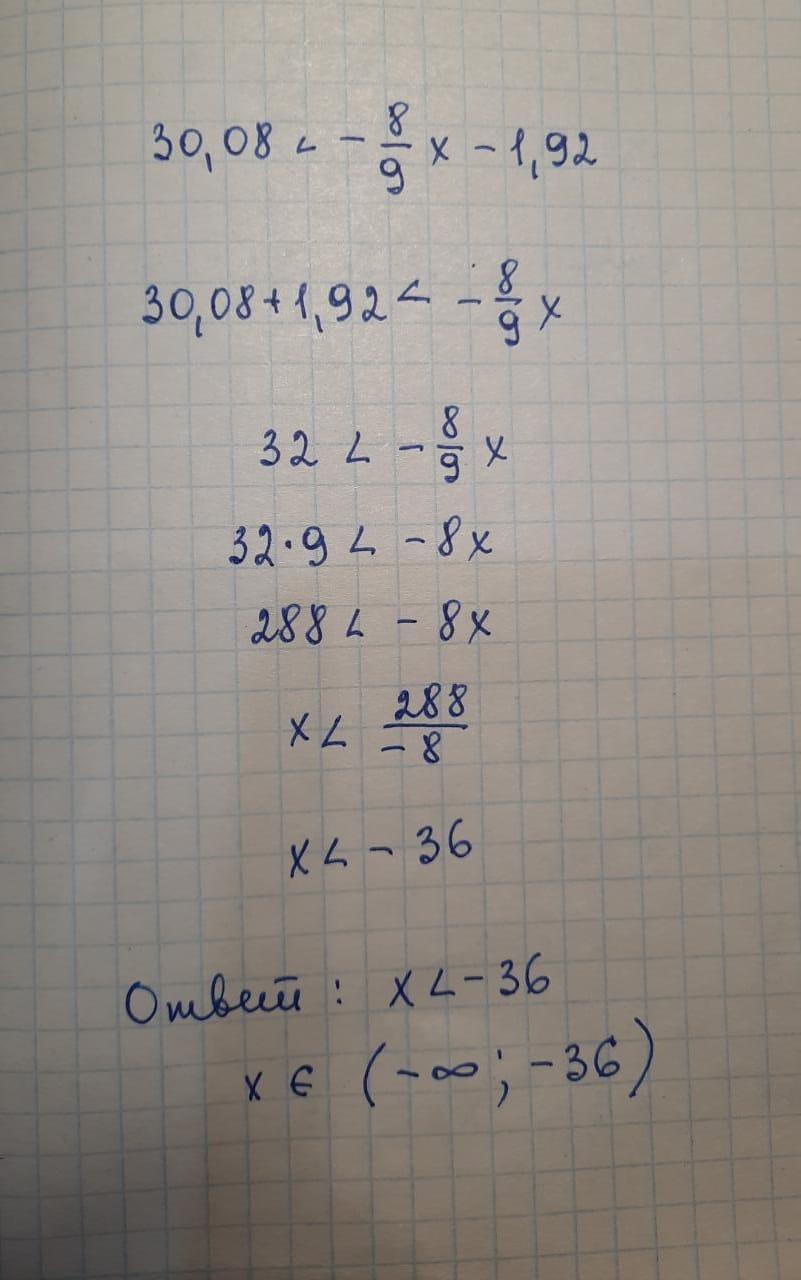 30,08 < - 8/9 x - 1,92
30,08 + 1,92 < - 8/9 x
32 < - 8/9 x
32 · 9 < - 8x
288 < - 8x
x < 288/-8
x < - 36
Ответ: x < - 36
x ∈ (-∞; -36)